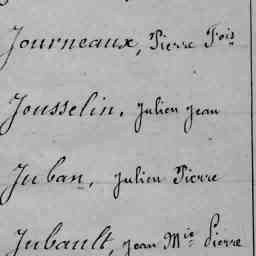 Journeaux, Pierre Fois
Jousselin, Julien Jean
Juban, Julien Pierre
Jubault, Jean Mie Pierre